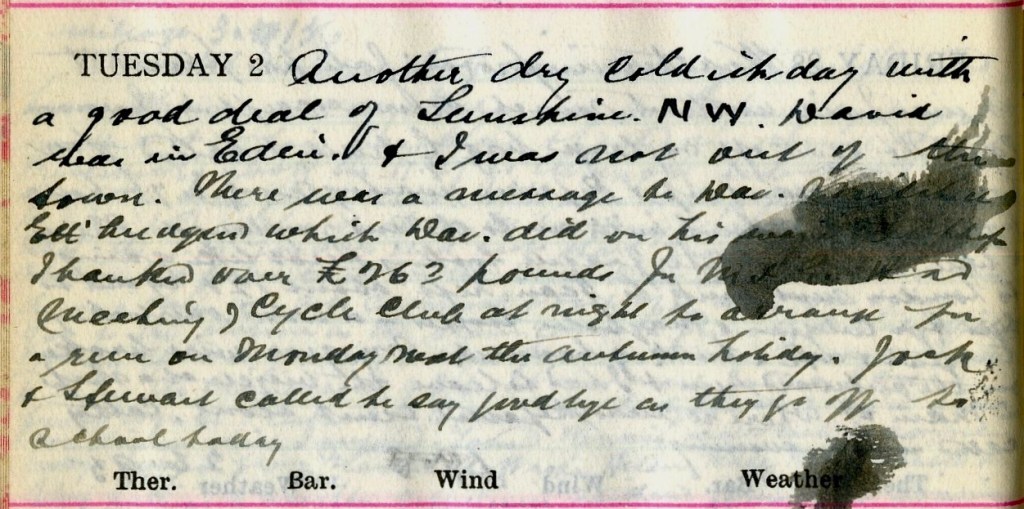 TUESDAY 2 Another dry coldish day with
a good deal of Sunshine. NW. David
was in Eden. & I was not out of the
town. There was a message to Dav.
which Dav. did on his
I banked over £263 pounds
meeting of Cycle Club at night to arrange for
a run on Monday next the Autumn holiday. Jock
& Stewart called to say goodbye as they go off to
School today
Ther. Bar. Wind Weather